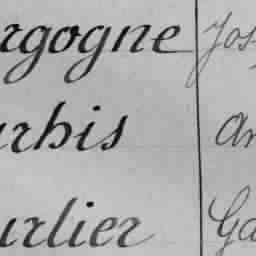 rgogne Jos
urbis An
urlier Ga